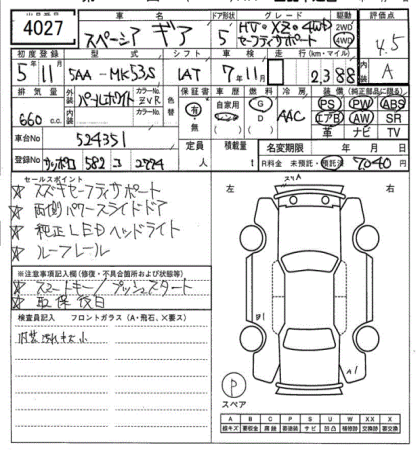 4027
車名
スペーシア ギア
ドア形状
5
グレード
HV・XZ 4WD
セーフティサポート
駆動
2WD
4WD
評価点
4.5
A
初度登録
5年11月
型式
5AA-MK53S
シフト
LAT
車検
7年11月
走行(km・マイル)
2,388
装備(純正部品に限る)
PS PW ABS
エアB AW SR
革 ナビ TV
排気量
660 c.c.
外装
パールホワイト
カラーNo.
ZVR
内装
カラーNo.
色替
保証書
有・無
車歴
自家用
レンタ
燃料
G
D
冷房
AAC
車台No
524351
定員
人
積載量
t
名変期限
年 月 日
登録No
サッポロ 582 コ 2774
R料金 未預託・預託済 7040円
セールスポイント
☆ スズキセーフティサポート
☆ 両側パワースライドドア
☆ 純正LEDヘッドライト
☆ ルーフレール
※注意事項記入欄(修復・不具合箇所および状態等)
☆ スマートキー/プッシュスタート
☆ 取保後日
検査員記入 フロントガラス(A・飛石、X要ス)
内装汚れキズ小
左
右
A1
P
スペア
A B C P S U W X XX X
線キズ 要板金 腐蝕 要塗装 サビ 凹凸 補修跡 交換跡 要交換